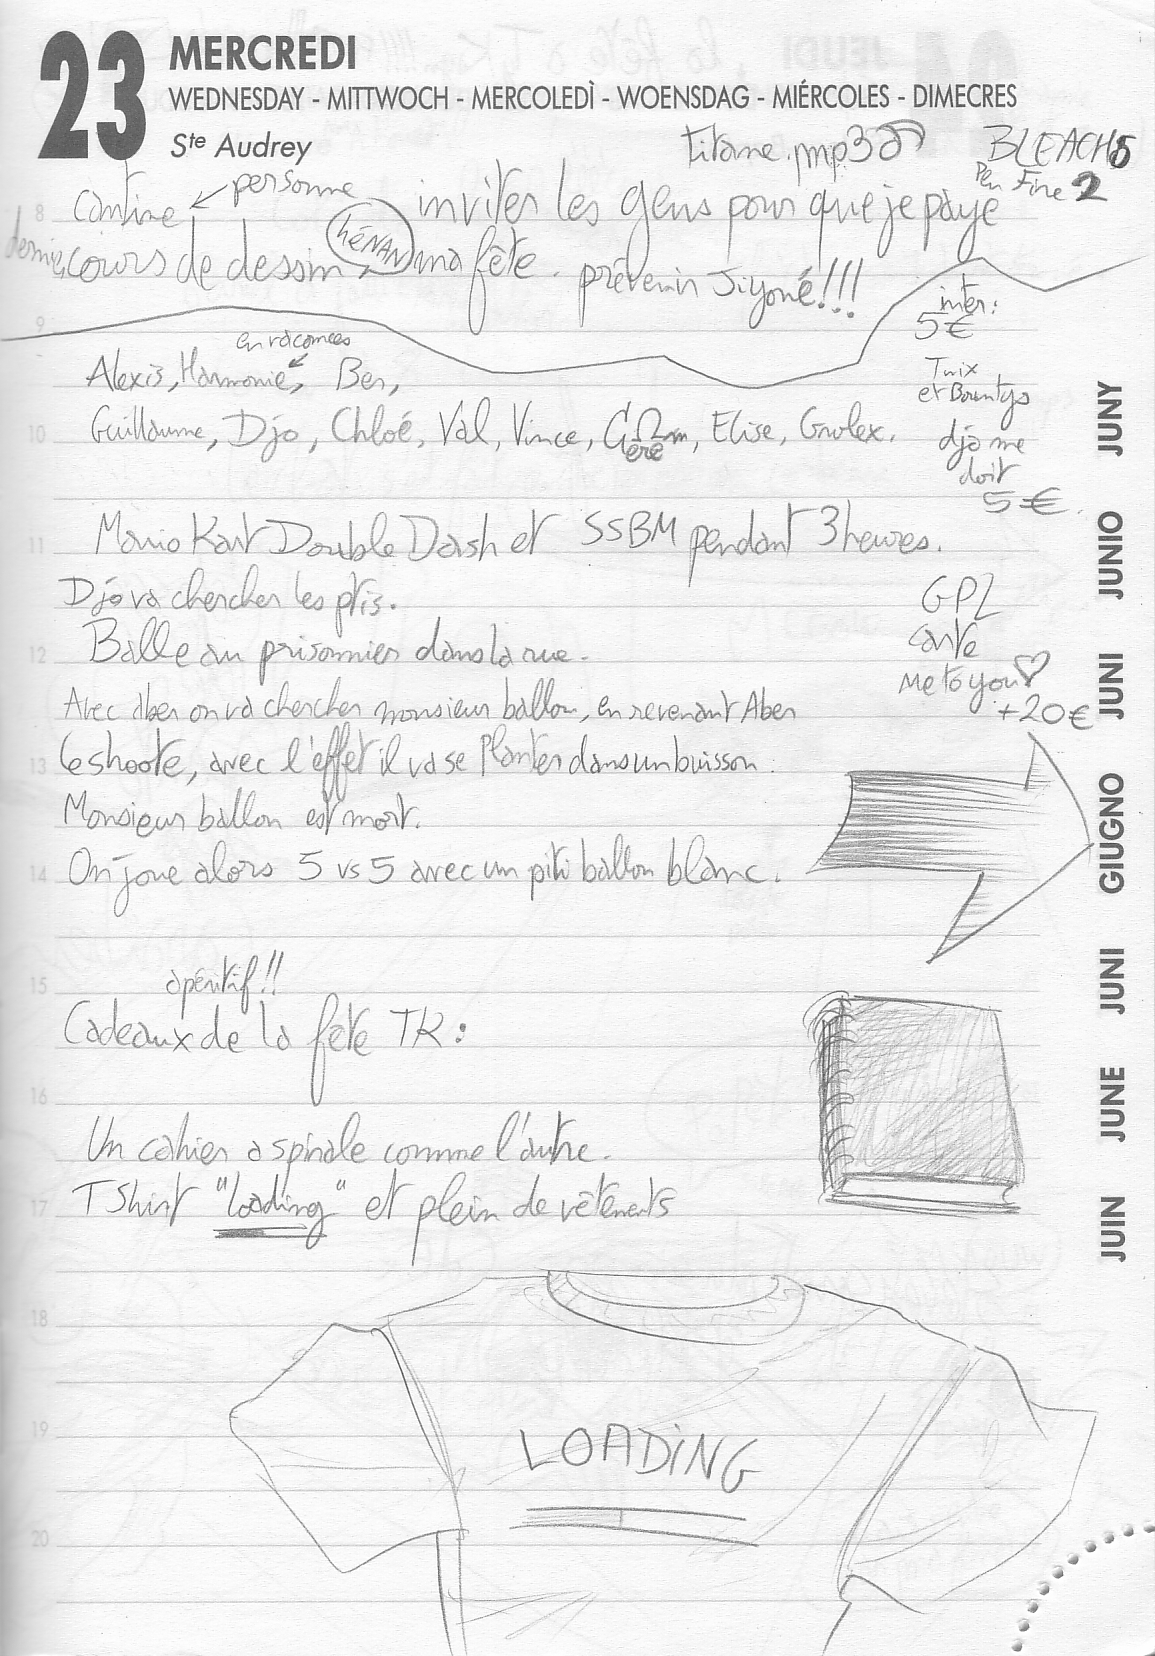 23 MERCREDI
WEDNESDAY - MITTWOCH - MERCOLEDÌ - WOENSDAG - MIÉRCOLES - DIMECRES
Ste Audrey
titane.mp3
BLEACH 5
Pen Fine 2
8 cantine ← personne
inviter les gens pour que je paye
dernier cours de dessin
HÉNAN
ma fête. prévenir Jiyoné!!!
9
inter:
5€
en vacances
Alexis, Harmonie, Ben,
Twix
et Bountys
10 Guillaume, Djo, Chloé, Val, Vince, Géré, Elise, Gnolex.
djo me
doit
5€.
11 Mario Kart Double Dash et SSBM pendant 3 heures.
Djo va chercher les ptis.
GPZ
12 Balle au prisonnier dans la rue.
carte
me to you ♡
+20€
Avec Aber on va chercher monsieur ballon, en revenant Aber
13 le shoote, avec l'effet il va se planter dans un buisson.
Monsieur ballon est mort.
14 On joue alors 5 vs 5 avec un piti ballon blanc.
15 apéritif!!
Cadeaux de la fête TK:
16
Un cahier a spirale comme l'autre.
17 T Shirt "loading" et plein de vêtements
18
19 LOADiNG
20
JUIN JUNE JUNI GIUGNO JUNI JUNIO JUNY